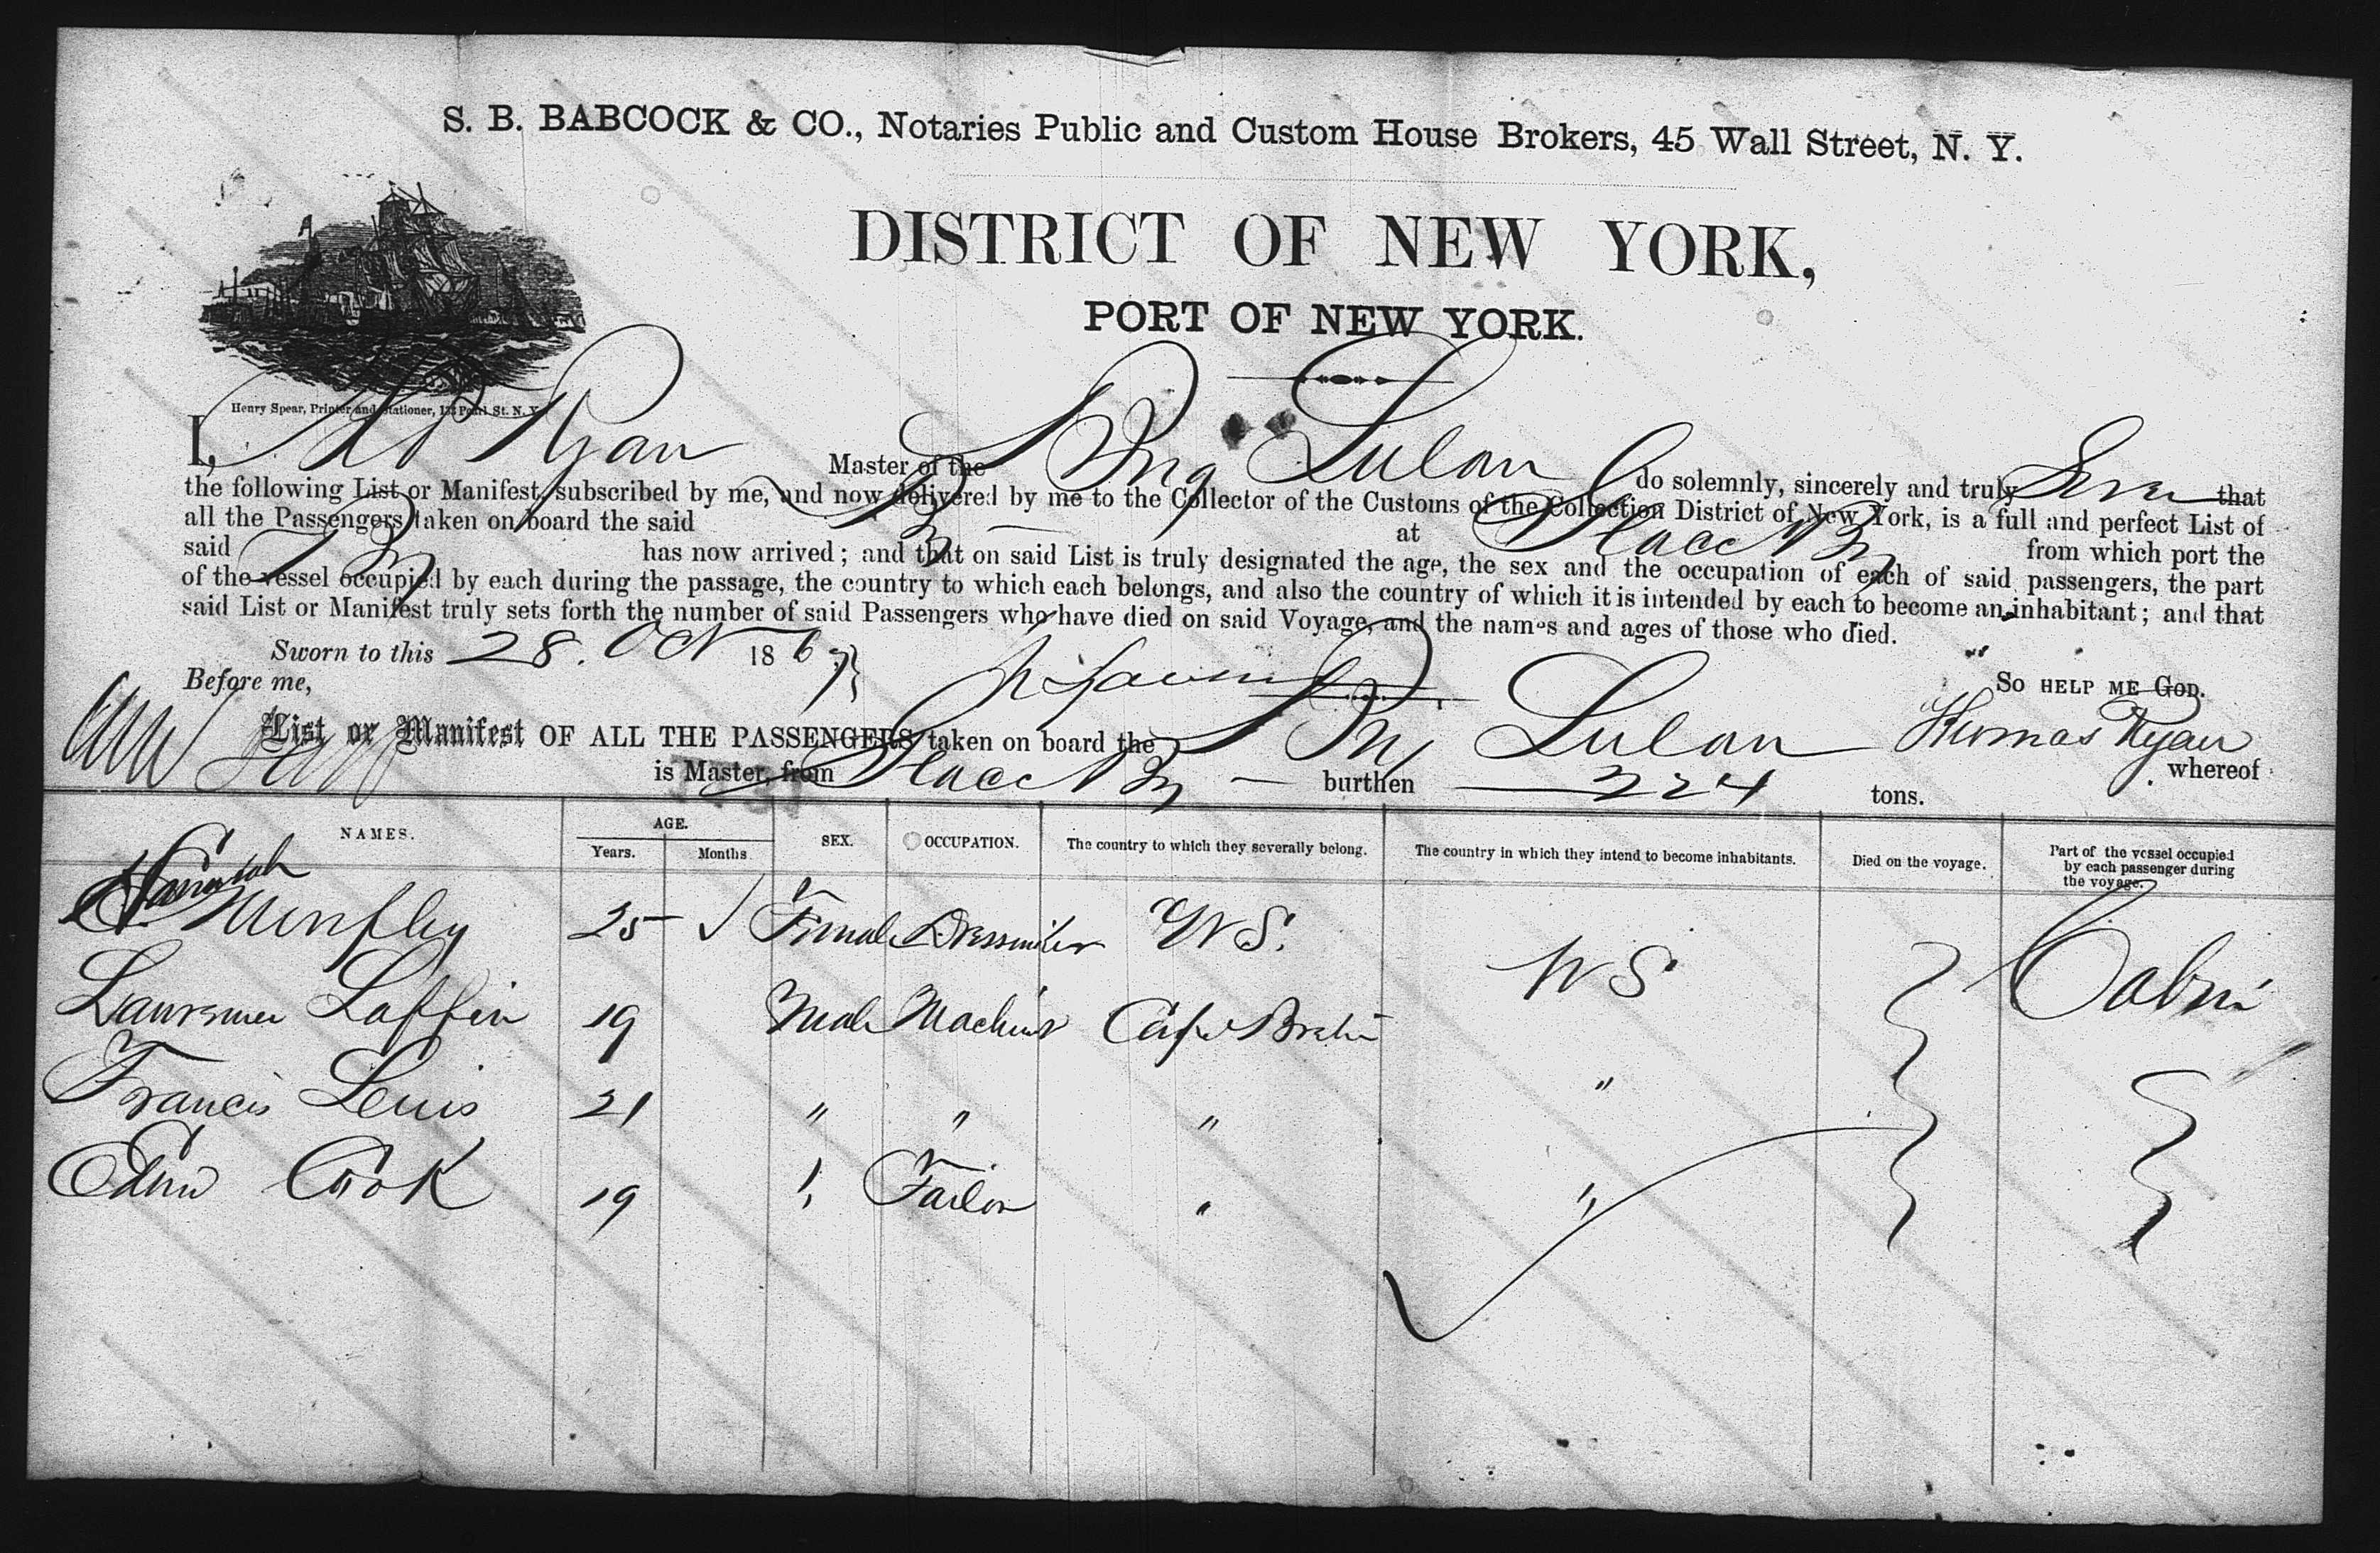 S. B. BABCOCK & CO., Notaries Public and Custom House Brokers, 45 Wall Street, N. Y.
DISTRICT OF NEW YORK,
PORT OF NEW YORK.
Henry Spear, Printer and Stationer, 133 Pearl St. N. Y.
I, Ryan Master of the Brig Lulan do solemnly, sincerely and truly Swear that
the following List or Manifest, subscribed by me, and now delivered by me to the Collector of the Customs of the Collection District of New York, is a full and perfect List of
all the Passengers taken on board the said at from which port the
said has now arrived; and that on said List is truly designated the age, the sex and the occupation of each of said passengers, the part
of the vessel occupied by each during the passage, the country to which each belongs, and also the country of which it is intended by each to become an inhabitant; and that
said List or Manifest truly sets forth the number of said Passengers who have died on said Voyage, and the names and ages of those who died.
Sworn to this 28. Oct 1867 So HELP ME GOD.
Before me,
List or Manifest OF ALL THE PASSENGERS taken on board the Lulan Thomas Ryan whereof
is Master, from burthen 224 tons.
NAMES. AGE. SEX. OCCUPATION. The country to which they severally belong. The country in which they intend to become inhabitants. Died on the voyage. Part of the vessel occupied by each passenger during the voyage.
Years. Months
Hannah 25 Female Dressmaker Cabin
Lawrence Laffin 19 Male Machinist Cape Breton
Francis Lewis 21 " " " "
Edwd Cook 19 " Tailor " "